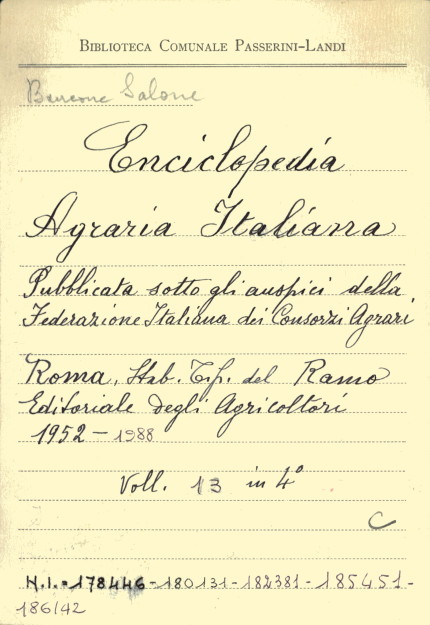 BIBLIOTECA COMUNALE PASSERINI-LANDI
Bancone Salone
Enciclopedia
Agraria Italiana
Pubblicata sotto gli auspici della
Federazione Italiana dei Consorzi Agrari
Roma, Stab. Tip. del Ramo
Editoriale degli Agricoltori
1952 - 1988
Voll. 13 in 4°
C
N.I. = 178446 - 180131 - 182381 - 185451 -
186142